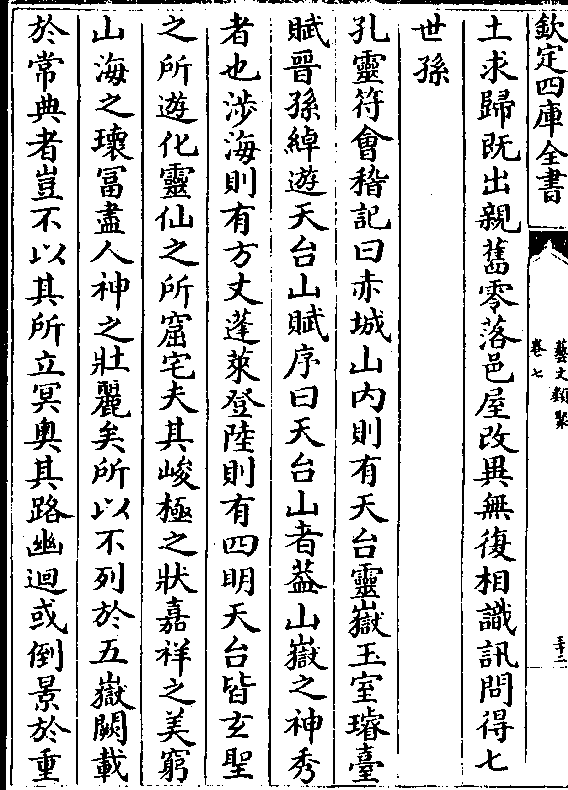 欽定四庫全書
藝文類聚
卷七
三十二
土求歸既出親舊零落邑屋改異無復相識訊問得七
世孫
孔靈符會稽記曰赤城山內則有天台靈嶽玉室璿臺
賦晉孫綽遊天台山賦序曰天台山者葢山嶽之神秀
者也涉海則有方丈蓬萊登陸則有四明天台皆玄聖
之所遊化靈仙之所窟宅夫其峻極之狀嘉祥之美窮
山海之瓌冨盡人神之壯麗矣所以不列於五嶽闕載
於常典者豈不以其所立冥奥其路幽迴或倒景於重